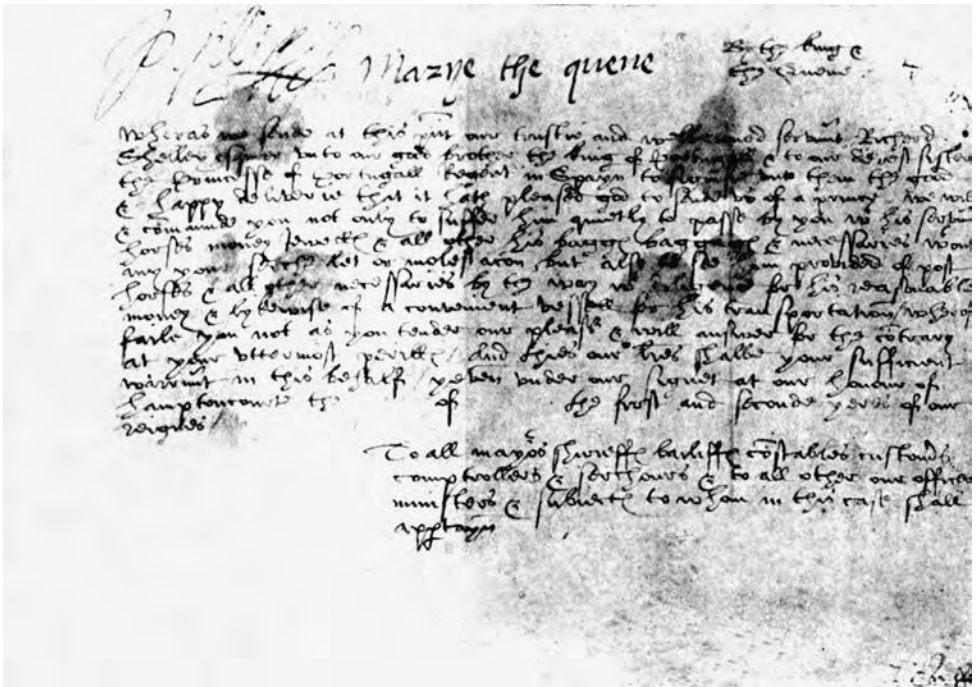 Marye the quene
By the king &
the Quene
Wheras we sende at this pnt our trustie and welbeloved servunt Richard
Shelley esquier unto our good brother the king of Portugall & to our derest sister
the Princesse of Portugall Regent in Spayn to them the good
& happy deliverie that it hath pleased god to sende us of a prince we will
& comaund you not only to suffer him quietly to passe by you wt his
horses money Jewells & all other his baggage & necessaries wtout
any your serche let or molestacon, but also to see him provided of post
horses & all other necessaries by the way for his reasonable
money & lykewise of a convenient vessell for his transportation / wherof
faile you not as you tender our pleasr & will answer for the contrary
at your uttermost perill / And thies our lres shalbe your sufficient
warrunt in this behalf / yeven under our signet at our honour of
Hamptoncourte the of the first and seconde yeres of our
reignes /
To all mayors shireffs bailiffs constables customers
comptrollers & serchours & to all other our officers
ministers & subiects to whom in this case shall
apptayn